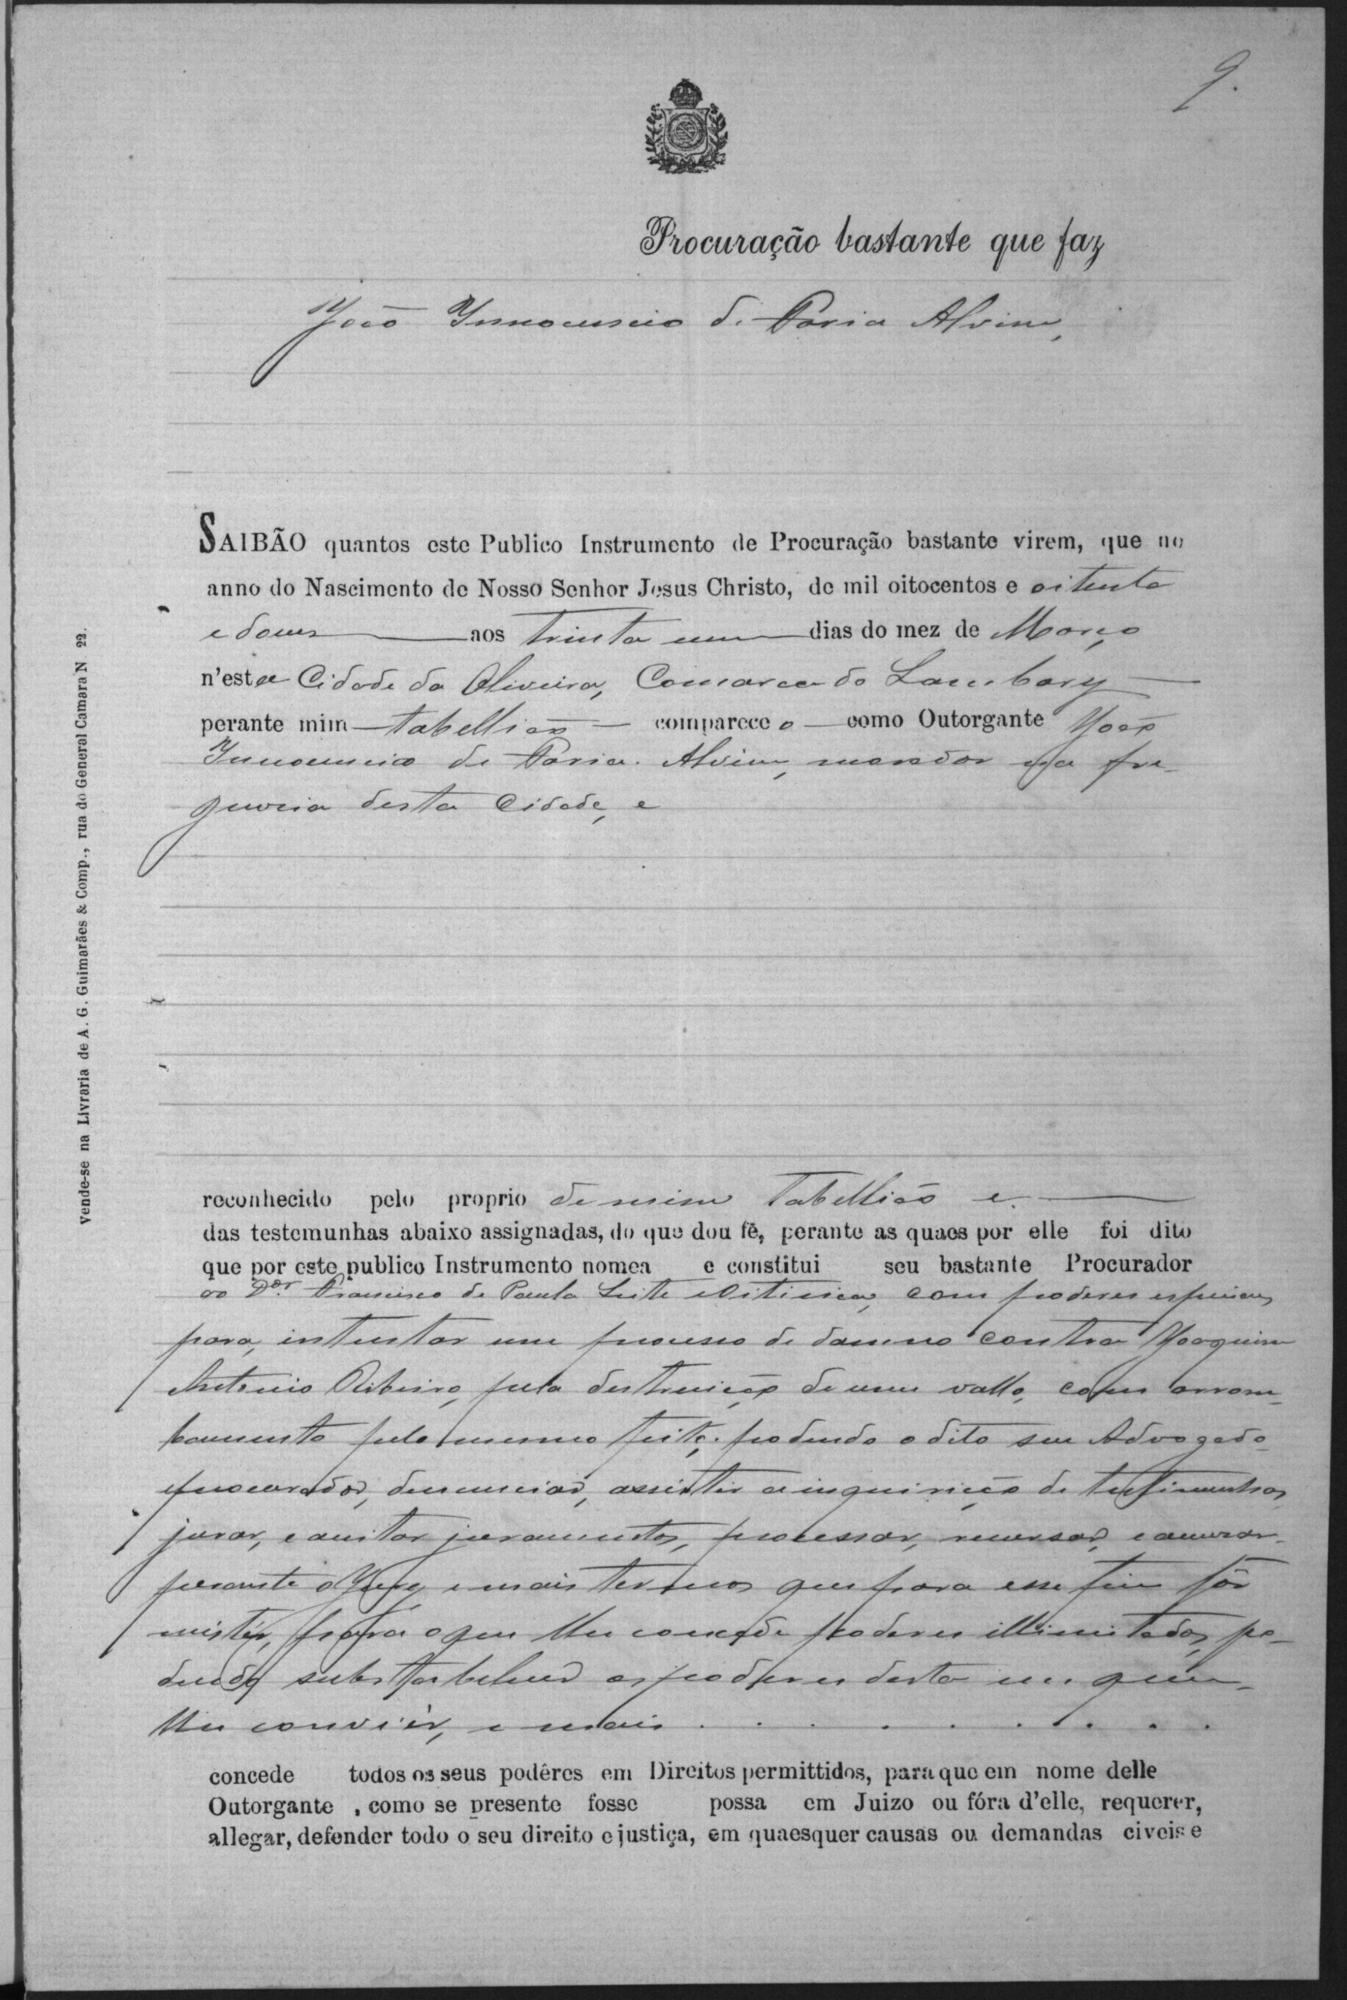 9.
Procuração bastante que faz
João Innocencio de Faria Alvim,
SAIBÃO quantos este Publico Instrumento de Procuração bastante virem, que no
anno do Nascimento de Nosso Senhor Jesus Christo, de mil oitocentos e oitenta
e dous aos trinta um dias do mez de Março
n'esta Cidade da Oliveira, Comarca do Lambary
perante mim Tabellião compareceo como Outorgante João
Innocencio de Faria Alvim, morador na fre-
guesia desta Cidade, e
reconhecido pelo proprio de mim Tabellião e
das testemunhas abaixo assignadas, do que dou fé, perante as quaes por elle foi dito
que por este publico Instrumento nomea e constitui seu bastante Procurador
ao Dor. Francisco de Paula Leite e Oiticica, com poderes especiaes
para, intentar um processo de damno contra Joaquim
Antonio Ribeiro, pela destruição de um vallo, com arrom-
bamento pelo mesmo feito; podendo o dito seu Advogado
e procurador, denunciar, assistir a inquirição de testimunhas,
jurar, e aceitar juramentos, processar, recorrer, e accusar
perante o Jury, e mais termos que para esse fim fôr
mistér, para o que lhe concede poderes illimitados, po-
dendo substabelecer os poderes desta em quem
lhe conviér, e mais . . . . . . . . .
concede todos os seus podêres em Direitos permittidos, para que em nome delle
Outorgante, como se presente fosse possa em Juizo ou fóra d'elle, requerer,
allegar, defender todo o seu direito e justiça, em quaesquer causas ou demandas civeis e
vende-se na Livraria de A. G. Guimarães & Comp., rua do General Camara N 22.